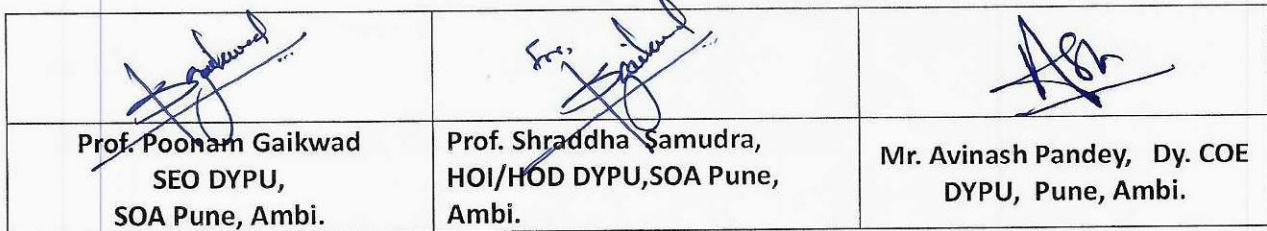 For,
Prof. Poonam Gaikwad
SEO DYPU,
SOA Pune, Ambi.
Prof. Shraddha Samudra,
HOI/HOD DYPU,SOA Pune,
Ambi.
Mr. Avinash Pandey, Dy. COE
DYPU, Pune, Ambi.